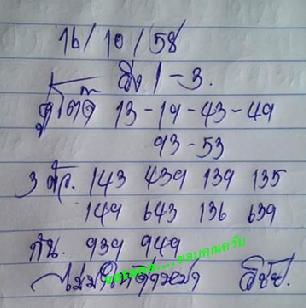 16/10/58
ยิง 1-3.
คู่โต๊ด 13-19-43-49
93-53
3 ตัว. 143 439 139 135
149 643 136 639
กัน. 939 949
ขอบคุณครับ